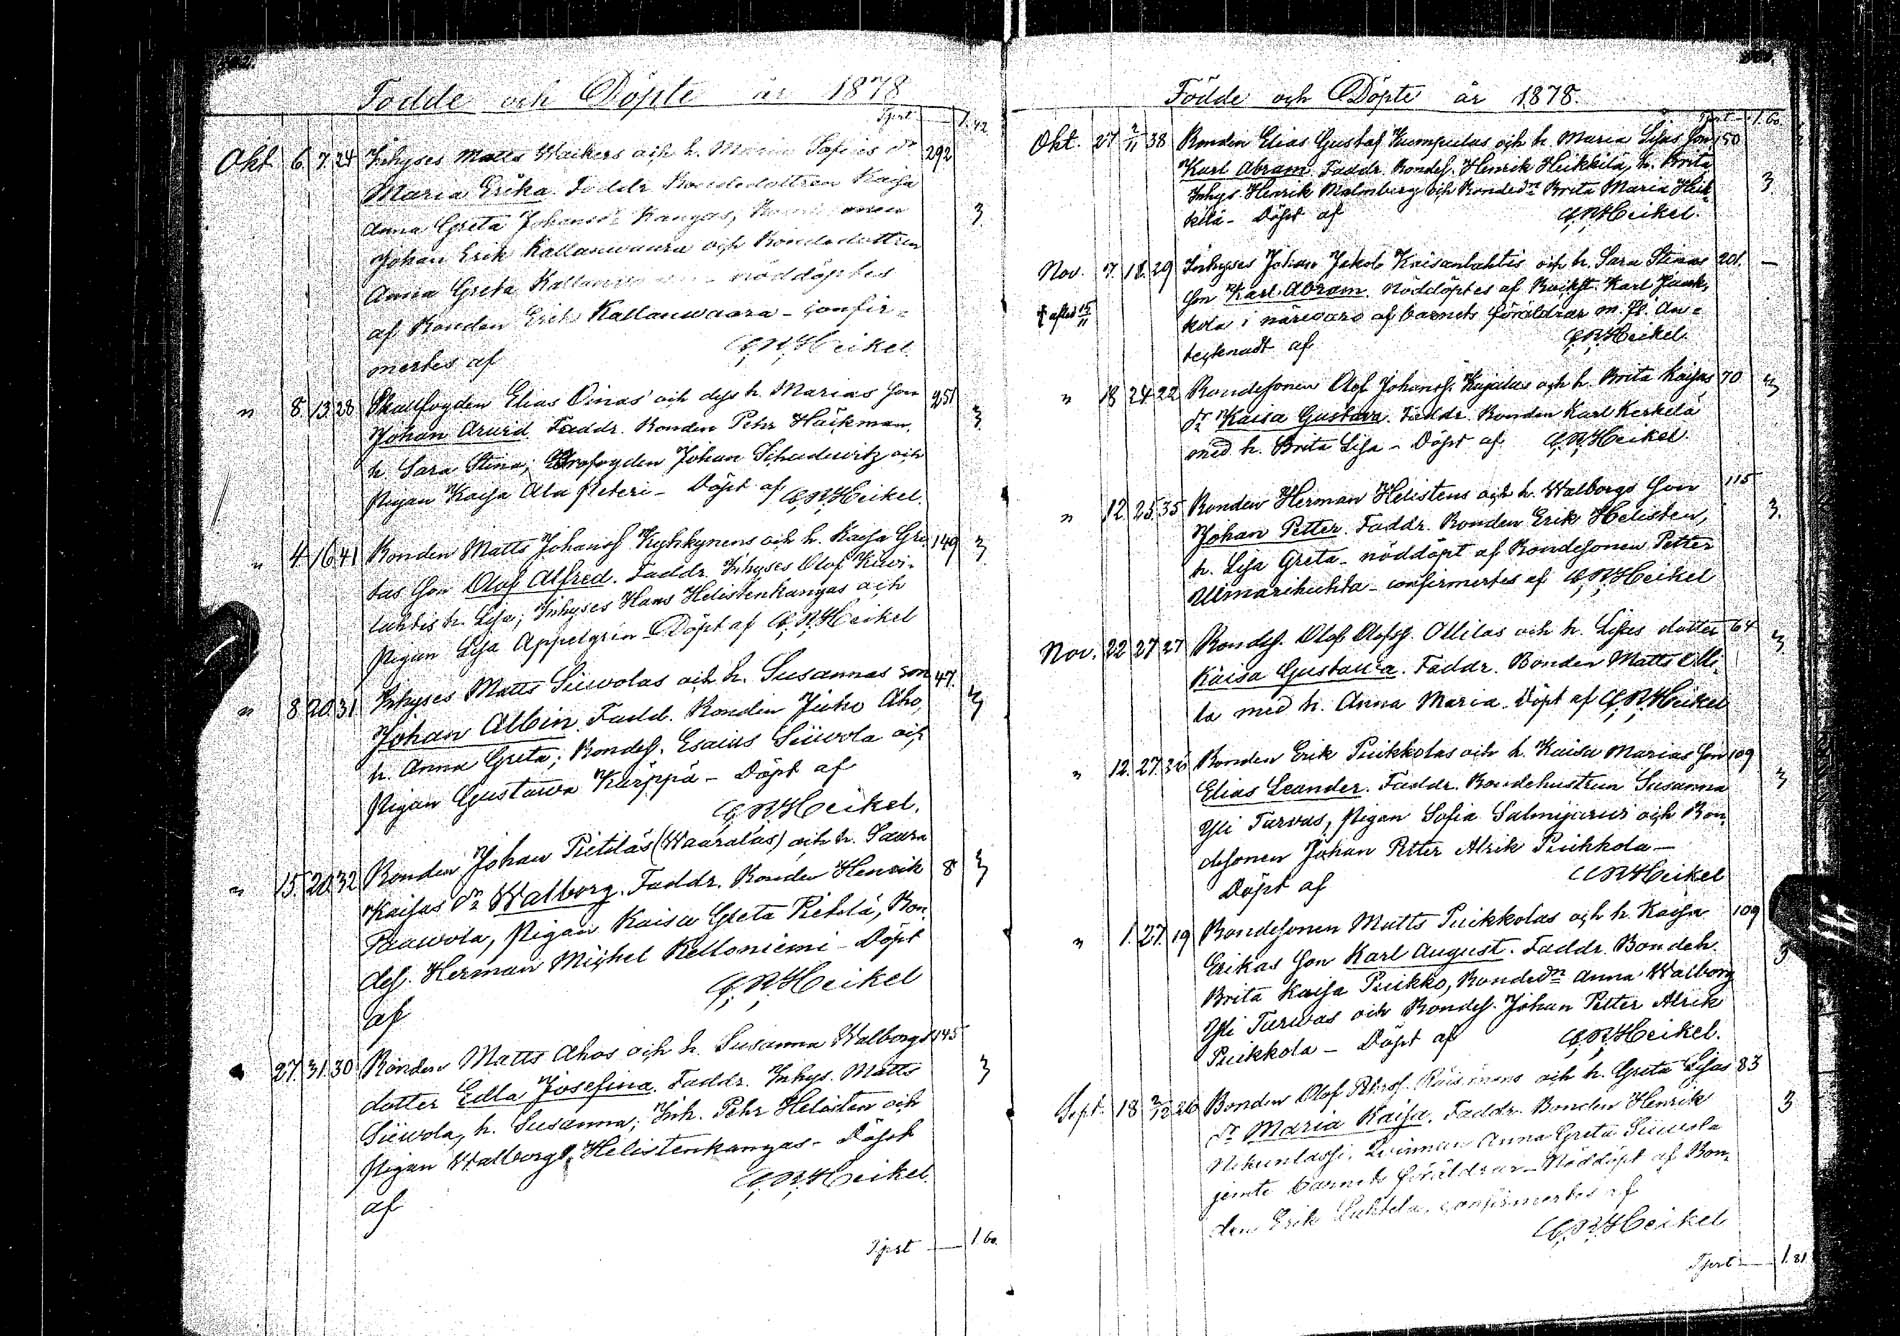 Födde och Döpte år 1878
Tprt — 1.42
Okt 6. 7. 24 Inhyses Matts Waikers och h. Maria Sofias dr 292
Maria Erika. Faddr Bondedottren Kaisa
Anna Greta Johansdr Kangas,
Johan Erik Kallanwaara och Bondedottren 3.
Anna Greta nöddöptes
af Bonden Erik Kallanwaara – confir-
mertes af C. R. Heikel.
" 8. 13. 28 Skallfogden Elias Oinas och dess h. Marias son 251
Johan Arvid. Faddr. Bonden Pehr Häikman, 3
h. Sara Stina; Johan och
Pigan Kaisa Ala Peteri – Döpt af C. R. Heikel.
" 4. 16. 41 Bonden Matts Johanss Kyhkynens och h. Kaisa Gre- 149 3
tas son Olof Alfred. Faddr. Inhyses Olof
h. Lisa; Inhyses Hans Helistenkangas och
Pigan Lisa Appelgrin – Döpt af C. R. Heikel
" 8. 20. 31 Inhyses Matts Siiwolas och h. Susannas son 47. 3
Johan Albin. Fadd. Bonden Juho Aho,
h. Anna Greta; Bondes. Esaias Siiwola och
Pigan Gustawa Karppa – Döpt af
C. R. Heikel.
" 15. 20. 32 Bonden Johan Pietiläs (Waaralas) och h. Saara 8 3
Kaisas dr Walborg. Faddr. Bonden Henrik
Paawola, Pigan Kaisa Greta Pietilä, Bon-
des. Herman Michel Kelloniemi – Döpt
af C. R. Heikel
27. 31. 30 Bonden Matts Ahos och h. Susanna Walborgs 145 3
dotter Edla Josefina. Faddr. Inhys. Matts
Siiwola, h. Susanna; Inh. Pehr Helisten och
Pigan Walborg Helistenkangas – Döpt
af C. R. Heikel.
Tprt — 1 60.
Födde och Döpte år 1878.
Tprt — 1. 60.
Okt. 27 2/11 38 Bonden Elias Gustaf Kumpulas och h. Maria Lisas son 150
Karl Abram. Faddr. Bondes. Henrik Heikkilä, h. Brita 3
Inhys. Henrik Malmberg och Bondedr Brita Maria Heik-
kilä – Döpt af C. R. Heikel.
Nov. 7. 18. 29 Inhyses Johan Jakob Kaisanlahtis och h. Sara Stinas 201. —
son Karl Abram. Nöddöptes af Karl
† afled 15/11 i närvaro af barnets föräldrar m. fl. An-
tecknadt af C. R. Heikel.
" 18 24. 22 Bondesonen Olof Johanss. Kujalas och h. Brita Kaisas 70 3
dr Kaisa Gustava. Faddr. Bonden Karl Kerkelä
med h. Brita Lisa – Döpt af C. R. Heikel.
" 12. 25. 35 Bonden Herman Helistens och h. Walborgs son 115
Johan Petter. Faddr. Bonden Erik Helisten, 3.
h. Lisa Greta – nöddöpt af Bondesonen Petter
Ulmarihuhta – confirmertes af C. R. Heikel
Nov. 22 27 27 Bondes. Olof Olofss. Ollilas och h. Lisas dotter 64 3
Kaisa Gustaava. Faddr. Bonden Matts Olli-
la med h. Anna Maria – Döpt af C. R. Heikel
" 12. 27. 36 Bonden Erik Puikkolas och h. Kaisa Marias son 109 3
Elias Leander. Faddr. Bondehustrun Susanna
Yli Turvas, Pigan Sofia Salmijarvi och Bon-
desonen Johan Petter Alrik Puikkola –
Döpt af C. R. Heikel
" 1. 27. 19 Bondesonen Matts Puikkolas och h. Kaisa 109 3
Erikas son Karl August. Faddr. Bondeh.
Brita Kaisa Puikko, Bondedn Anna Walborg
Yli Turwas och Bondes. Johan Petter Alrik
Puikkola – Döpt af C. R. Heikel.
Sept. 18 2/12 26 Bonden Olof och h. Greta Lisas 83
dr Maria Kaisa. Faddr. Bonden Henrik 3
Qvinnan Anna Greta Siiwola
jemte barnets föräldrar – Nöddöpt af Bon-
den Erik Luhtela, confirmertes af
C. R. Heikel
Tprt — 1. 81